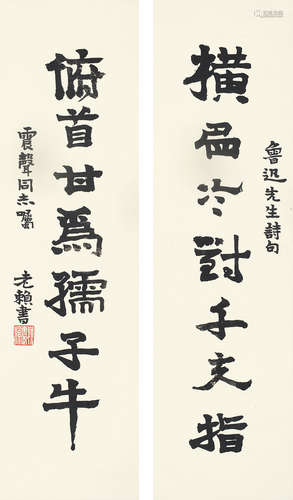 橫眉冷對千夫指
魯迅先生詩句
俯首甘爲孺子牛
震聲同志囑
老賴書